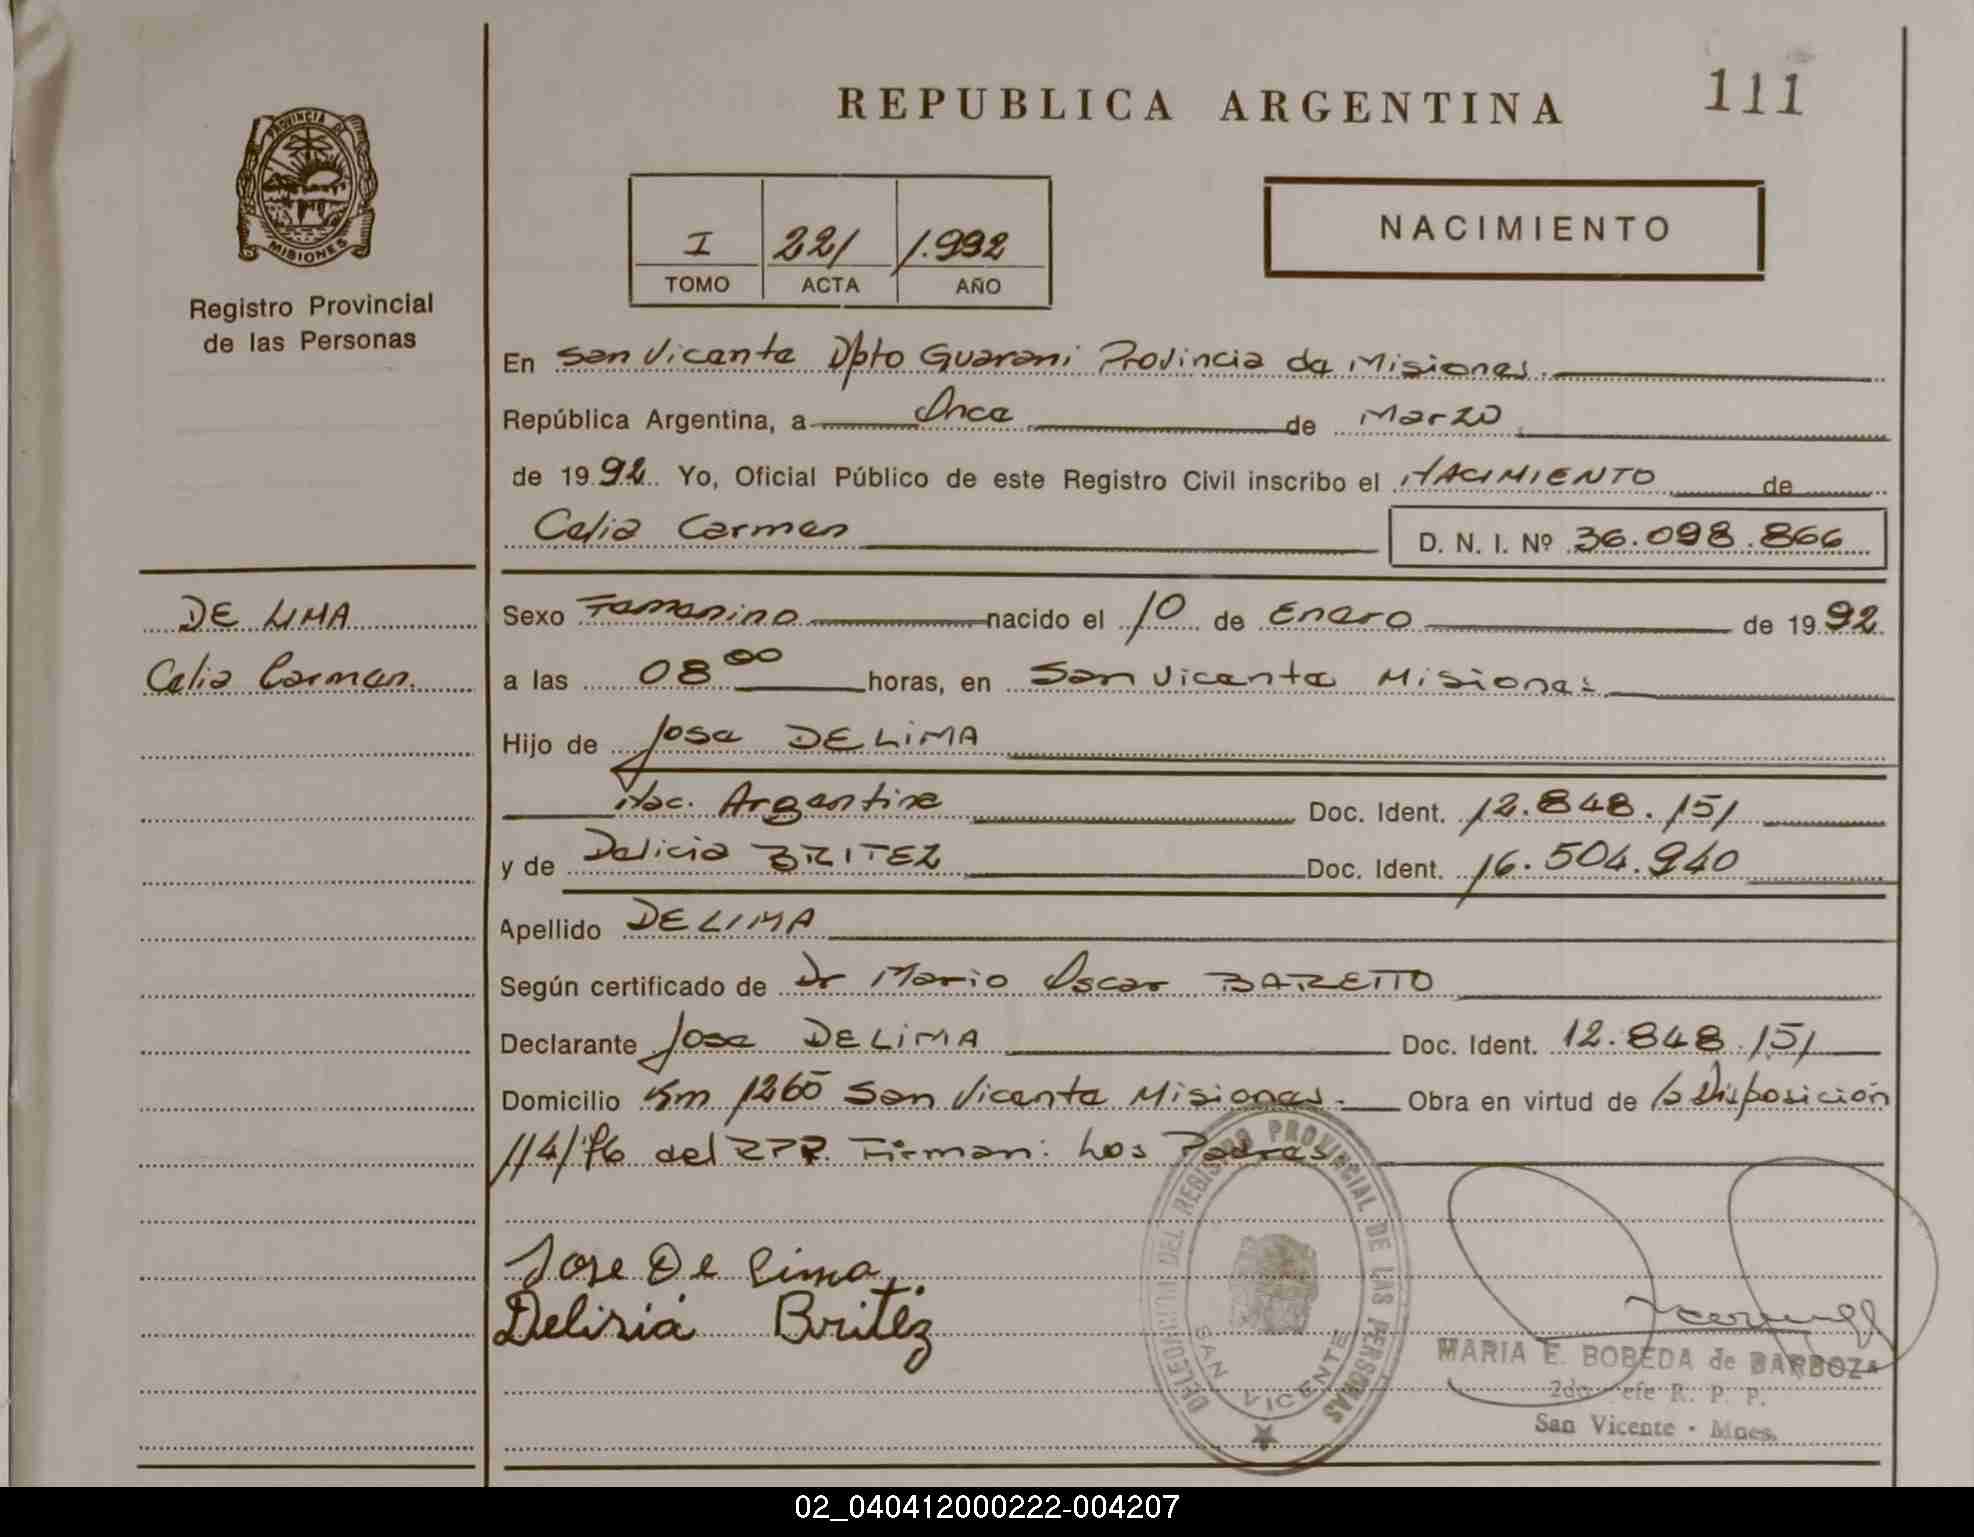 REPUBLICA ARGENTINA
111
PROVINCIA DE
MISIONES
Registro Provincial
de las Personas
I 221 1.992
TOMO ACTA AÑO
NACIMIENTO
En San Vicente Dpto Guarani Provincia de Misiones.
República Argentina, a Once de Marzo
de 1992. Yo, Oficial Público de este Registro Civil inscribo el NACIMIENTO de
Celia Carmen D. N. I. Nº 36.098.866
DE LIMA
Celia Carmen.
Sexo Femenino nacido el 10 de Enero de 1992
a las 08 00 horas, en San Vicente Misiones
Hijo de Jose DE LIMA
Nac. Argentina Doc. Ident. 12.848.151
y de Delicia BRITEZ Doc. Ident. 16.504.940
Apellido DE LIMA
Según certificado de Dr Mario Oscar BARETTO
Declarante Jose DE LIMA Doc. Ident. 12.848.151
Domicilio Km 1265 San Vicente Misiones. Obra en virtud de la Disposición
114/76 del RPP. Firman: Los Padres
Jose De Lima
Delisia Britez
DELEGACION DEL REGISTRO PROVINCIAL DE LAS PERSONAS
SAN VICENTE
MARIA E. BOBEDA de BARBOZA
2do Jefe R. P. P.
San Vicente - Mnes.
02_040412000222-004207